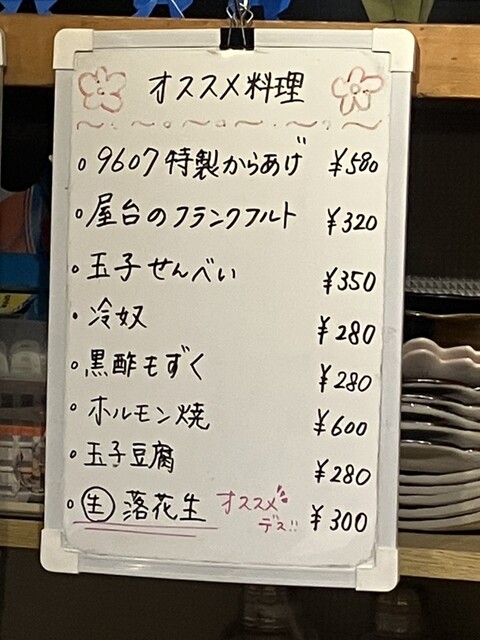 オススメ料理
9607特製からあげ ¥580
屋台のフランクフルト ¥320
玉子せんべい ¥350
冷奴 ¥280
黒酢もずく ¥280
ホルモン焼 ¥600
玉子豆腐 ¥280
生 落花生 オススメ ¥300
デス!!